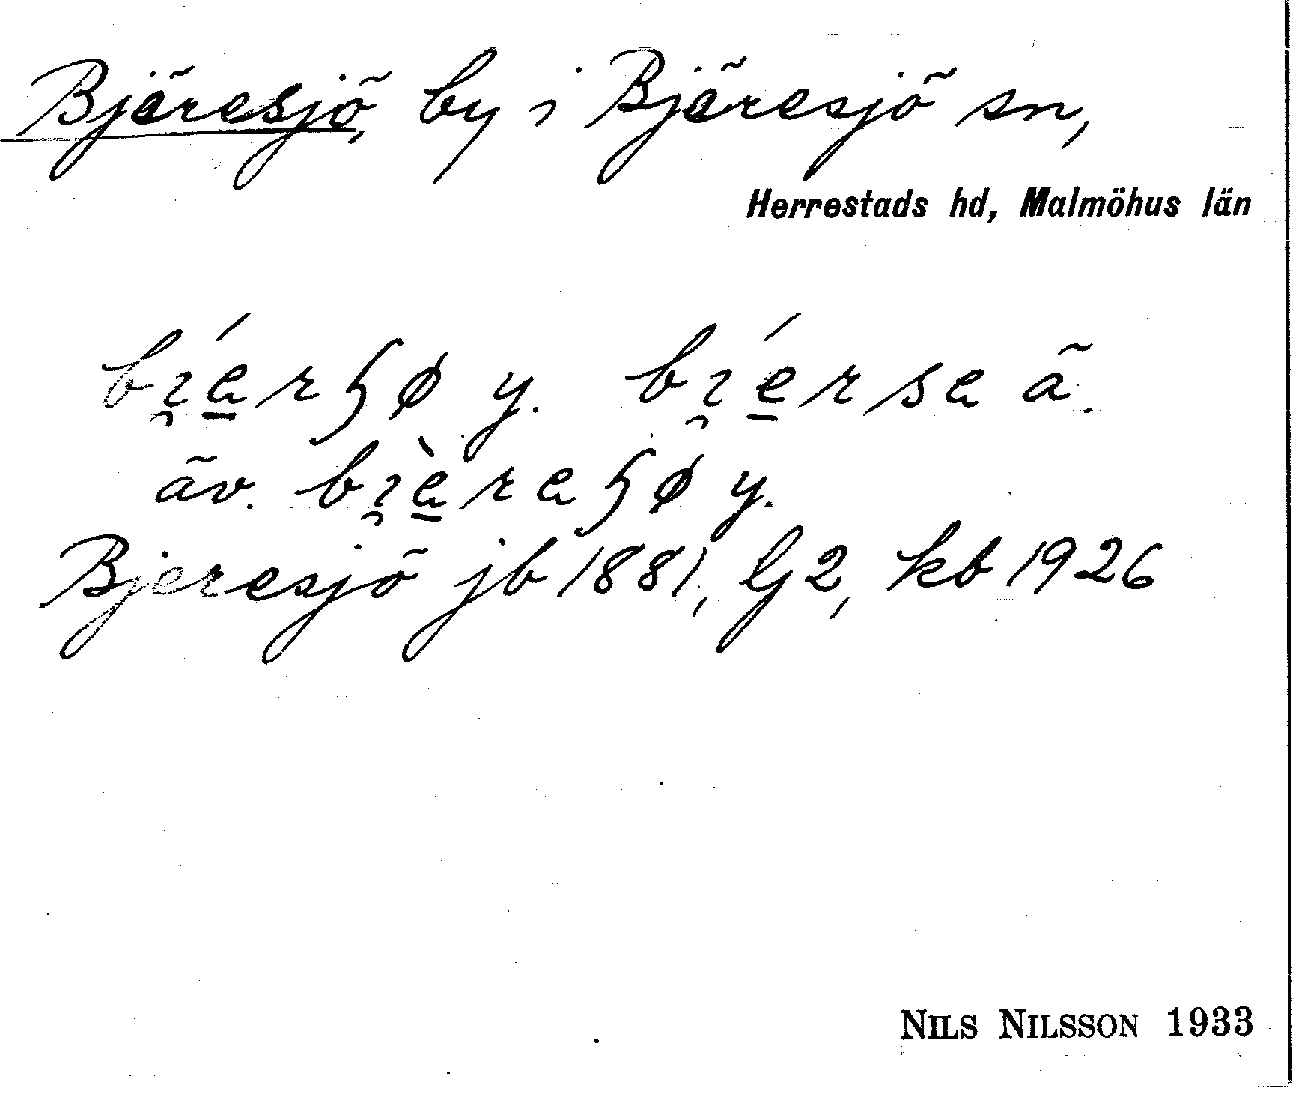 Bjäresjö, by i Bjäresjö sn,
Herrestads hd, Malmöhus län
bı̯ája̱rɧø y. bı̯érsa ä.
äv. bı̯èraɧø y.
Bjeresjö jb 1881, G2, kb 1926
NILS NILSSON 1933